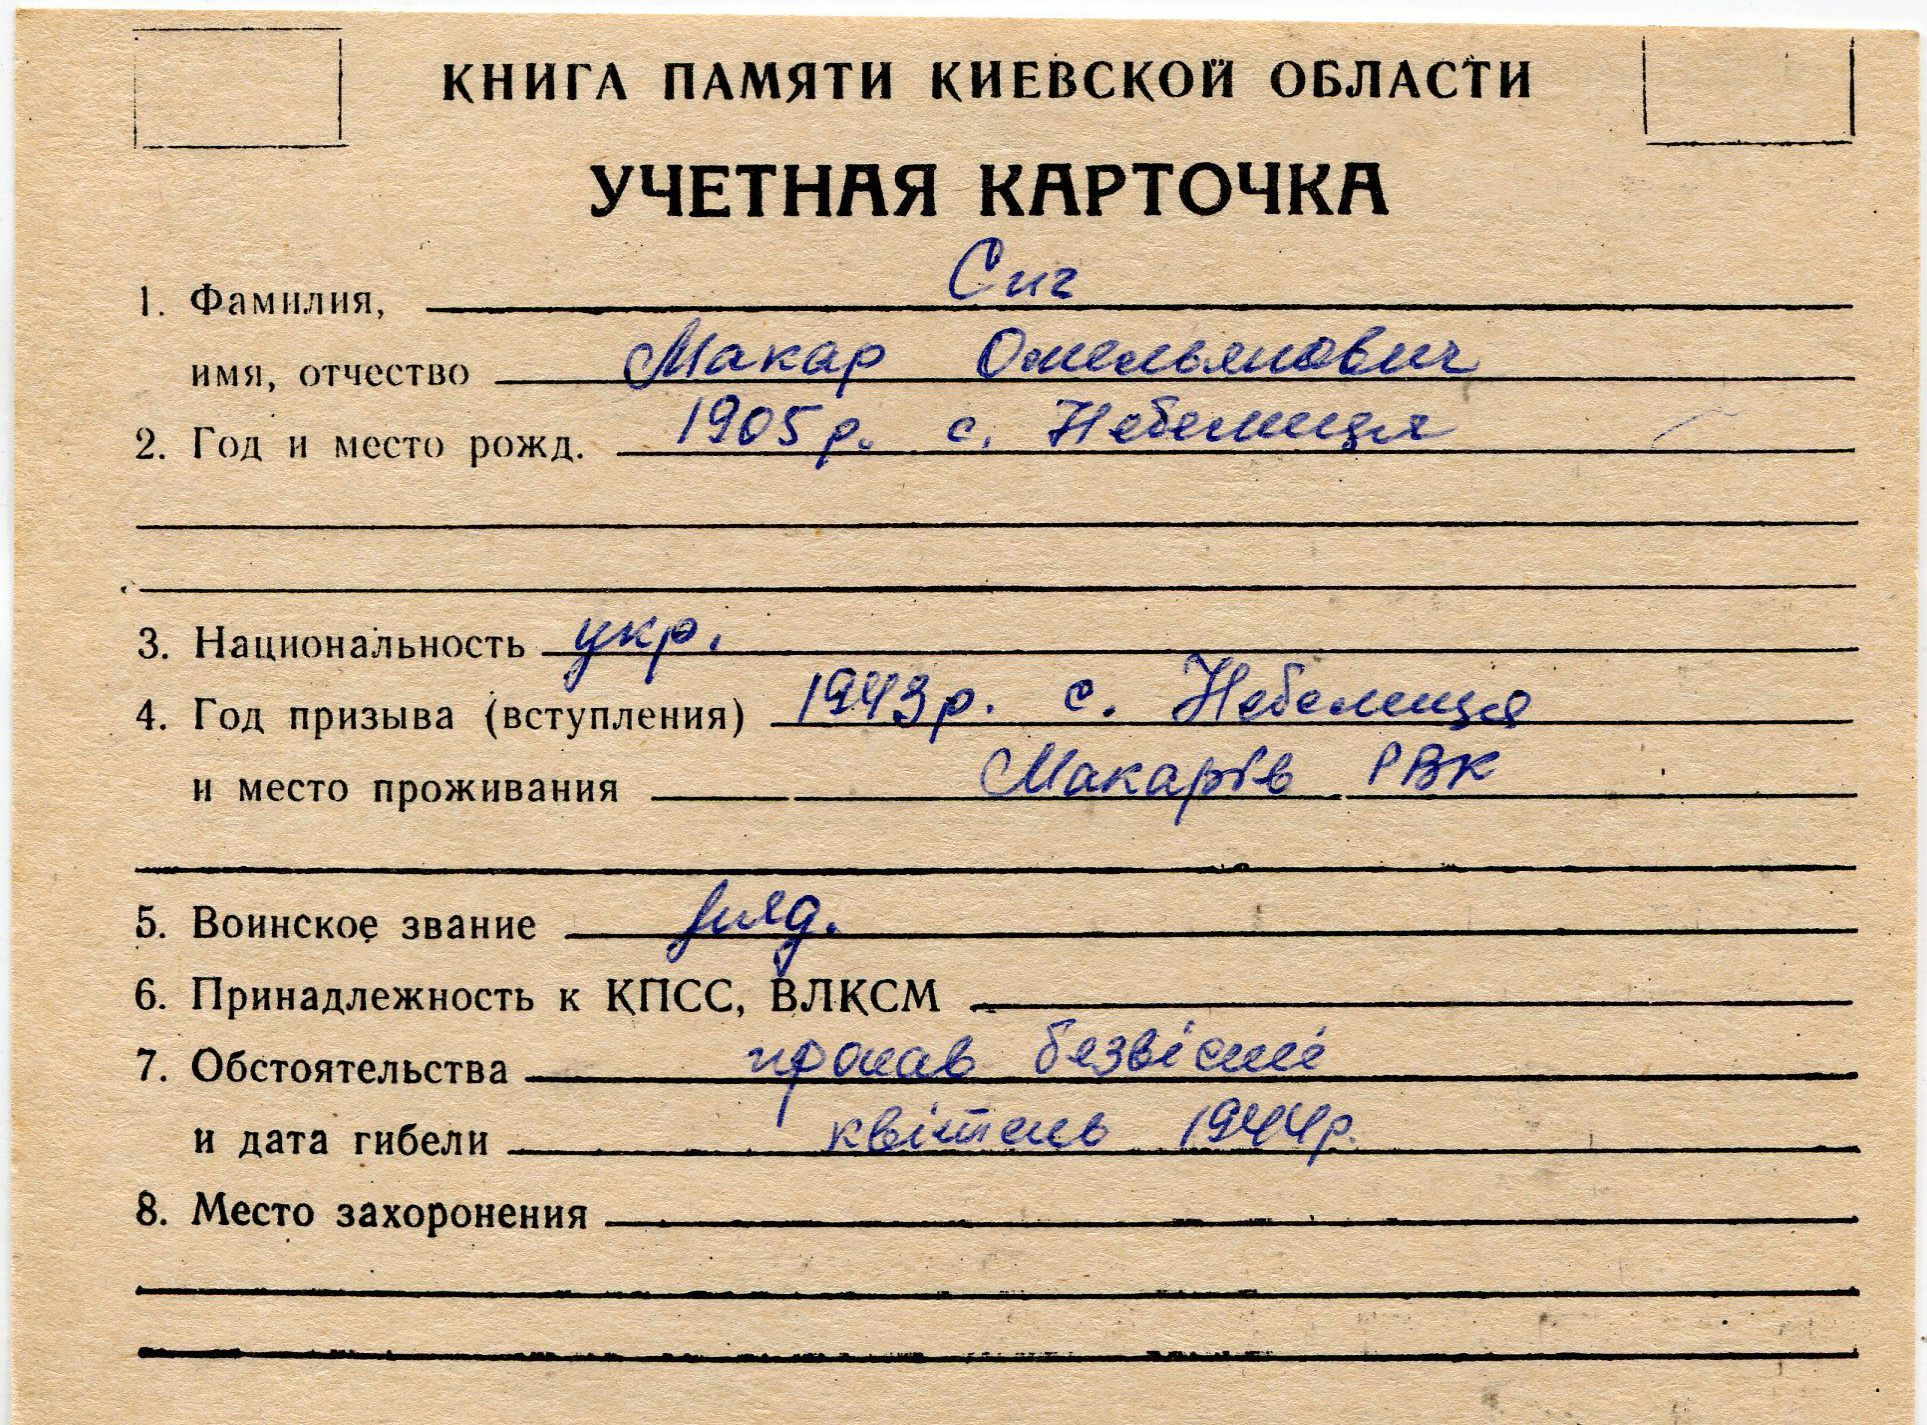 КНИГА ПАМЯТИ КИЕВСКОЙ ОБЛАСТИ
УЧЕТНАЯ КАРТОЧКА
1. Фамилия, Сич
имя, отчество Макар Омельянович
2. Год и место рожд. 1905 р. с. Небелиця
3. Национальность укр.
4. Год призыва (вступления) 1943 р. с. Небелиця
и место проживания Макарів РВК
5. Воинское звание
6. Принадлежность к КПСС, ВЛКСМ
7. Обстоятельства пропав безвісті
и дата гибели квітень 1944 р.
8. Место захоронения